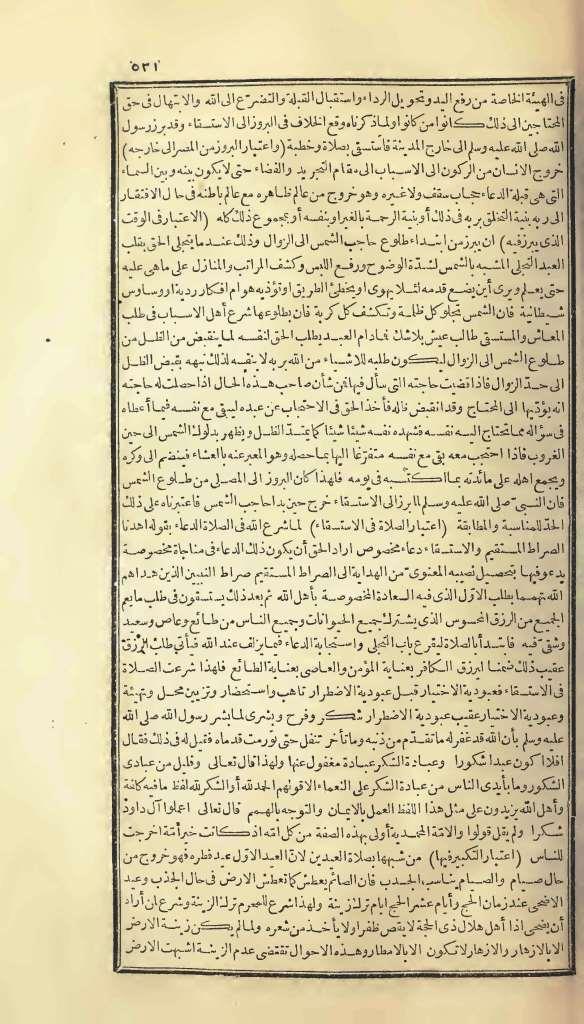 ٥٣١
فى الهيئة الخاصة من رفع اليد وتحويل الرداء واستقبال القبلة والتضرع الى الله والابتهال فى حق
المحتاجين الى ذلك كانوا من كانوا ولماذكرناه وقع الخلاف فى البروز الى الاستسقاء وقد برز رسول
الله صلى الله عليه وسلم الى خارج المدينة فاستسقى بصلاة وخطبة (واعتبار البروز من المصر الى خارجه)
خروج الانسان من الركون الى الاسباب الى مقام التجريد والفضاء حتى لا يكون بينه وبين السماء
التى هى قبلة الدعاء حجاب سقف ولا غيره وهو خروج من عالم ظاهره مع عالم باطنه فى حال الافتقار
الى ربه بنية التخلق بربه فى ذلك أو بنية الرحمة بالغير او بنفسه أو بمجموع ذلك كله (الاعتبار فى الوقت
الذى يبرز فيه) ان يبرز من ابتداء طلوع حاجب الشمس الى الزوال وذلك عند ما يتجلى الحق بقلب
العبد التجلى المشبه بالشمس لشدة الوضوح ورفع اللبس وكشف المراتب والمنازل على ماهى عليه
حتى يعلم ويرى أين يضع قدمه لئلا يهوى او يخطئ الطريق او تؤذيه هوام افكار ردية او وساوس
شيطانية فان الشمس تجلو كل ظلمة وتكشف كل كربة فان بطلوعها شرع أهل الاسباب فى طلب
المعاش والمستسقى طالب عيش بلاشك فمادام العبد يطلب الحق لنفسه لما ينقبض من الظل من
طلوع الشمس الى الزوال ليكون طلبه للاشياء من الله بربه لا بنفسه لذلك نبهه بقبض الظل
الى حد الزوال فاذا قضيت حاجته التى سأل فيها فمن شأن صاحب هذه الحال اذا حصلت له حاجته
انه يؤديها الى المحتاج وقد انقبض ظله فأخذ الحق فى الاحتجاب عن عبده ليبقى مع نفسه فيما أعطاه
فى سؤاله مما تحتاج اليه نفسه فشهده نفسه شيئا شيئا كما يمتد الظل ويظهر بدلوك الشمس الى حين
الغروب فاذا احتجب معه بقى مع نفسه متفرغا اليها بما حصله وهو المعبر عنه بالعشاء فينضم الى وكره
ويجمع اهله على مائدته بما اكتسبه فى يومه فلهذا كان البروز الى المصلى من طلوع الشمس
فان النبى صلى الله عليه وسلم لما برز الى الاستسقاء خرج حين بدا حاجب الشمس فاعتبرناه على ذلك
الحد للمناسبة والمطابقة (اعتبار الصلاة فى الاستسقاء) لما شرع الله فى الصلاة الدعاء بقوله اهدنا
الصراط المستقيم والاستسقاء دعاء مخصوص اراد الحق أن يكون ذلك الدعاء فى مناجاة مخصوصة
يدعو فيها بتحصيل نصيبه المعنوى من الهداية الى الصراط المستقيم صراط النبيين الذين هداهم
الله تهمما بطلب الاول الذى فيه السعادة المخصوصة بأهل الله ثم بعد ذلك يستسقون فى طلب ما يعم
الجميع من الرزق المحسوس الذى يشترك جميع الحيوانات وجميع الناس من طائع وعاص وسعيد
وشقى فيه فابتدأ بالصلاة ليقرع باب التجلى واستجابة الدعاء فيما يزلف عند الله فيأتى طلب الرزق
عقيب ذلك ضمنا ليرزق الكافر بعناية المؤمن والعاصى بعناية الطائع فلهذا شرعت الصلاة
فى الاستسقاء فعبودية الاختيار قبل عبودية الاضطرار تأهب واستحضار وتزيين محل وتهيئة
وعبودية الاختيار عقيب عبودية الاضطرار شكر وفرح وبشرى لما بشر رسول الله صلى الله
عليه وسلم بأن الله قد غفر له ما تقدم من ذنبه وما تأخر تنفل حتى تورمت قدماه فقيل له فى ذلك فقال
افلا اكون عبدا شكورا وعبادة الشكر عبادة مغفول عنها ولهذا قال تعالى وقليل من عبادى
الشكور وما بأيدى الناس من عبادة الشكر على النعماء الا قولهم الحمدلله أو الشكر لله لفظ ما فيه كلفة
وأهل الله يزيدون على مثل هذا اللفظ العمل بالايمان والتوجه بالهمم قال تعالى اعملوا آل داود
شكرا ولم يقل قولوا والامة المحمدية أولى بهذه الصفة من كل امة اذ كانت خير أمة اخرجت
للناس (اعتبار التكبير فيها) من شبهها بصلاة العيدين لان العيد الاول عيد فطر فهو خروج من
حال صيام والصيام يناسب الجدب فان الصائم يعطش كما تعطش الارض فى حال الجذب وعيد
الاضحى عند زمان الحج وأيام عشر الحج ايام ترك زينة ولهذا شرع للمحرم ترك الزينة وشرع لمن أراد
أن يضحى اذا أهل هلال ذى الحجة لا يقص ظفرا ولا يأخذ من شعره ولما لم يكن زينة الارض
الا بالازهار والازهار لا تكون الا بالامطار وهذه الاحوال تقتضى عدم الزينة اشبهت الارض